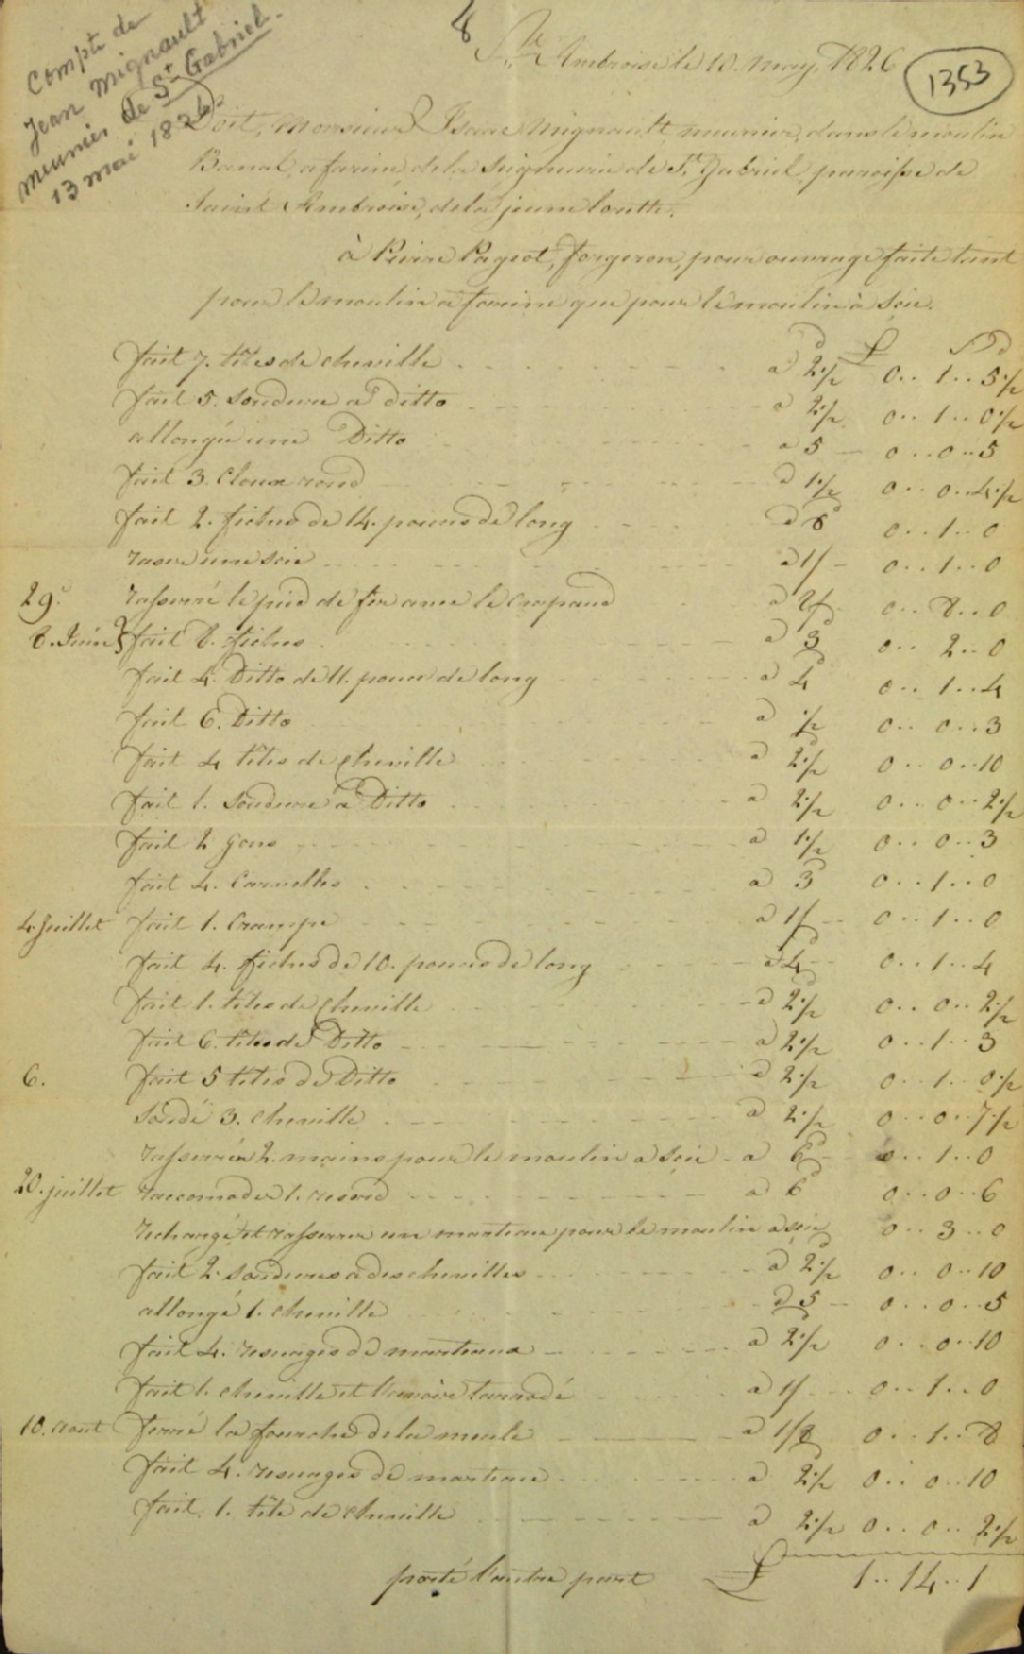 Compte de
Jean Mignault
meunier de St Gabriel.
13 mai 1826
8
St Ambroise le 13. may 1826
1353
Doit, Monsieur Isaac Mignault, meunier, dans le moulin
Banal, a farine, de la Seigneurie de St Gabriel, paroisse de
Saint Ambroise, de la jeune Lorette.
à Pierre Pageot, forgeron, pour ouvrage faite tant
pour le moulin a farine que pour le moulin à Scie.
D £ S D
fait 7. têtes de cheville a 2½ 0..1..5½
fait 5. Soudure a ditto a 2½ 0..1..0½
allongée une Ditto a 5 0..0..5
fait 3. Cloux rond a 1½ 0..0..4½
fait 2. fiches de 14. pouces de long a 6 0..1..0
une Scie a 1/ 0..1..0
29. rasserré le pied de fer avec le Crapaud a 0..8..0
8. Juin fait 8. fiches a 3 0..2..0
fait 4. Ditto de 11. pouces de long a 4 0..1..4
fait 6. Ditto a ½ 0..0..3
fait 4 têtes de Cheville a 2½ 0..0..10
fait 1. Soudure a Ditto a 2½ 0..0..2½
fait 2 gons a 1½ 0..0..3
fait 4. Carvelles a 3 0..1..0
4. Juillet fait 1. Crampe a 1/ 0..1..0
fait 4. fiches de 10. pouces de long a 4 0..1..4
fait 1. têtes de Cheville a 2½ 0..0..2½
fait 6. têtes de Ditto a 2½ 0..1..3
6. fait 5 têtes de Ditto a 2½ 0..1..0½
Soudé 3. Cheville a 2½ 0..0..7½
2. mains pour le moulin a Scie a 6 0..1..0
20. juillet raccomoder 1. a 6 0..0..6
rechargé et un marteau pour le moulin a Scie 0..3..0
fait 2. Soudures a des chevilles a 2½ 0..0..10
allongé 1. cheville a 5 0..0..5
fait 4. de marteaux a 2½ 0..0..10
fait 1. cheville et a 1/ 0..1..0
10. Aout ferré la fourche de la meule a 1/8 0..1..8
fait 4. de marteau a 2½ 0..0..10
fait 1. tête de cheville a 2½ 0..0..2½
porté l'autre part £ 1..14..1